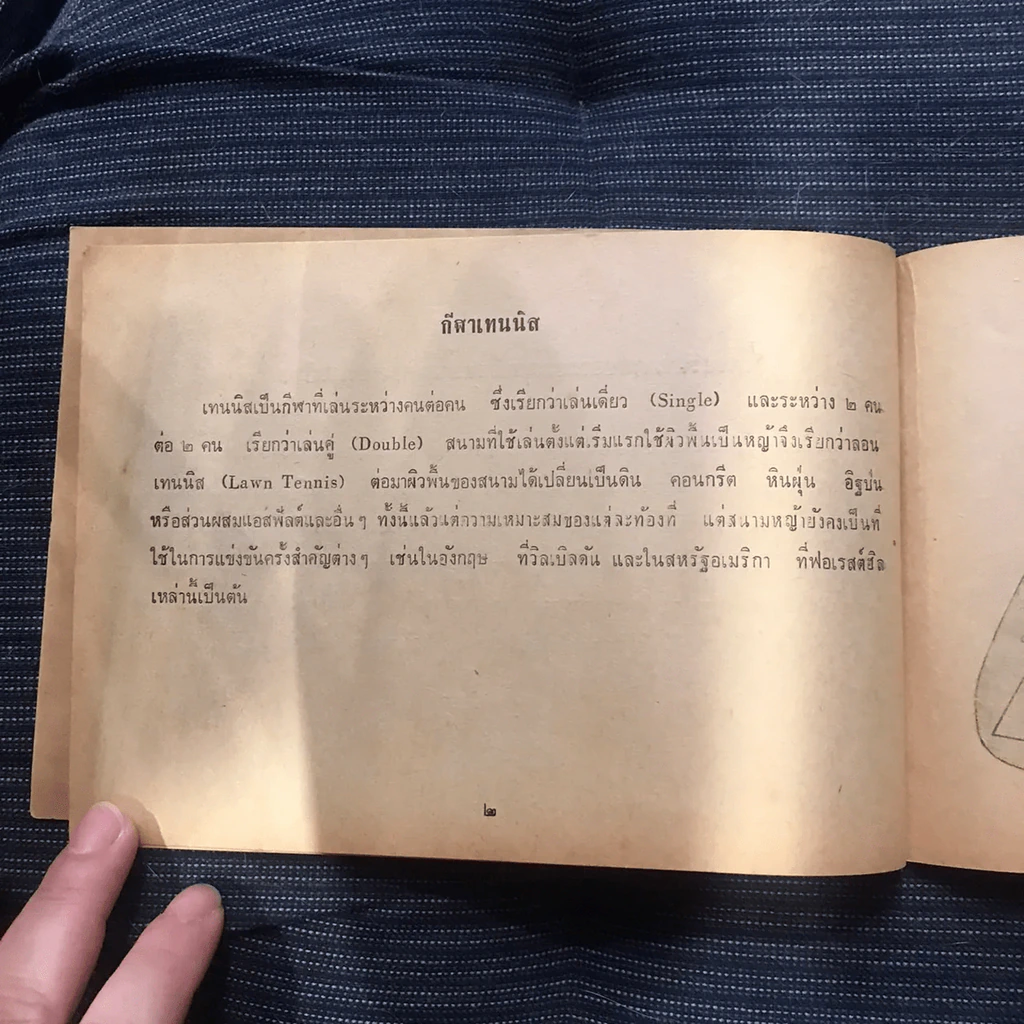 กีฬาเทนนิส
เทนนิสเป็นกีฬาที่เล่นระหว่างคนต่อคน ซึ่งเรียกว่าเล่นเดี่ยว (Single) และระหว่าง ๒ คน
ต่อ ๒ คน เรียกว่าเล่นคู่ (Double) สนามที่ใช้เล่นตั้งแต่เริ่มแรกใช้ผิวพื้นเป็นหญ้าจึงเรียกว่าลอน
เทนนีส (Lawn Tennis) ต่อมาผิวพื้นของสนามได้เปลี่ยนเป็นดิน คอนกรีต หินฝุ่น อิฐป่น
หรือส่วนผสมแอสฟัลต์และอื่นๆ ทั้งนี้แล้วแต่ความเหมาะสมของแต่ละท้องที่ แต่สนามหญ้ายังคงเป็นที่
ใช้ในการแข่งขันครั้งสำคัญต่างๆ เช่นในอังกฤษ ที่วิลเบิลดัน และในสหรัฐอเมริกา ที่ฟอเรสต์ฮิล
เหล่านี้เป็นต้น
๒